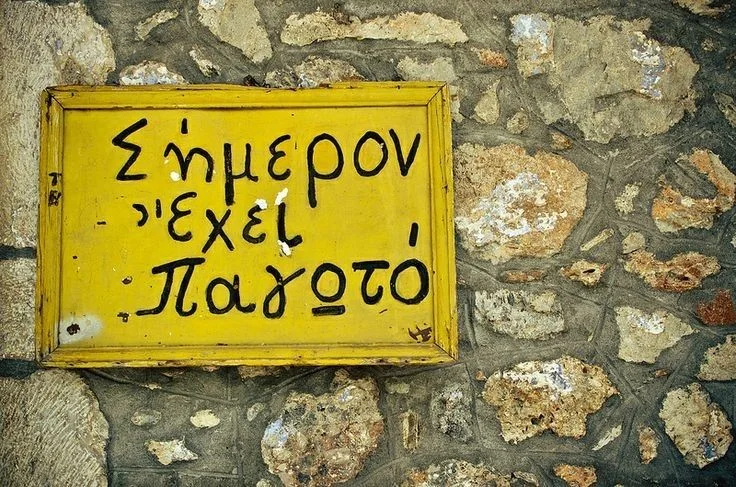 Σήμερον
Ἔχει
Παγωτό